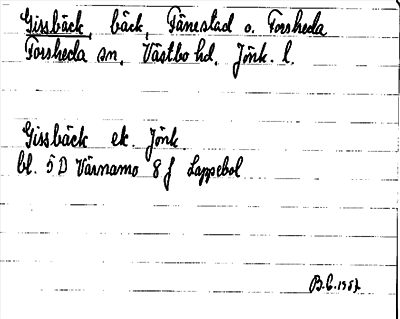 Gissbäck, bäck, Tånestad o. Forsheda
Forsheda sn, Västbo hd, Jönk. l.
Gissbäck ek. Jönk.
bl. 5D Värnamo 8f Lappebol
B.C. 1957.